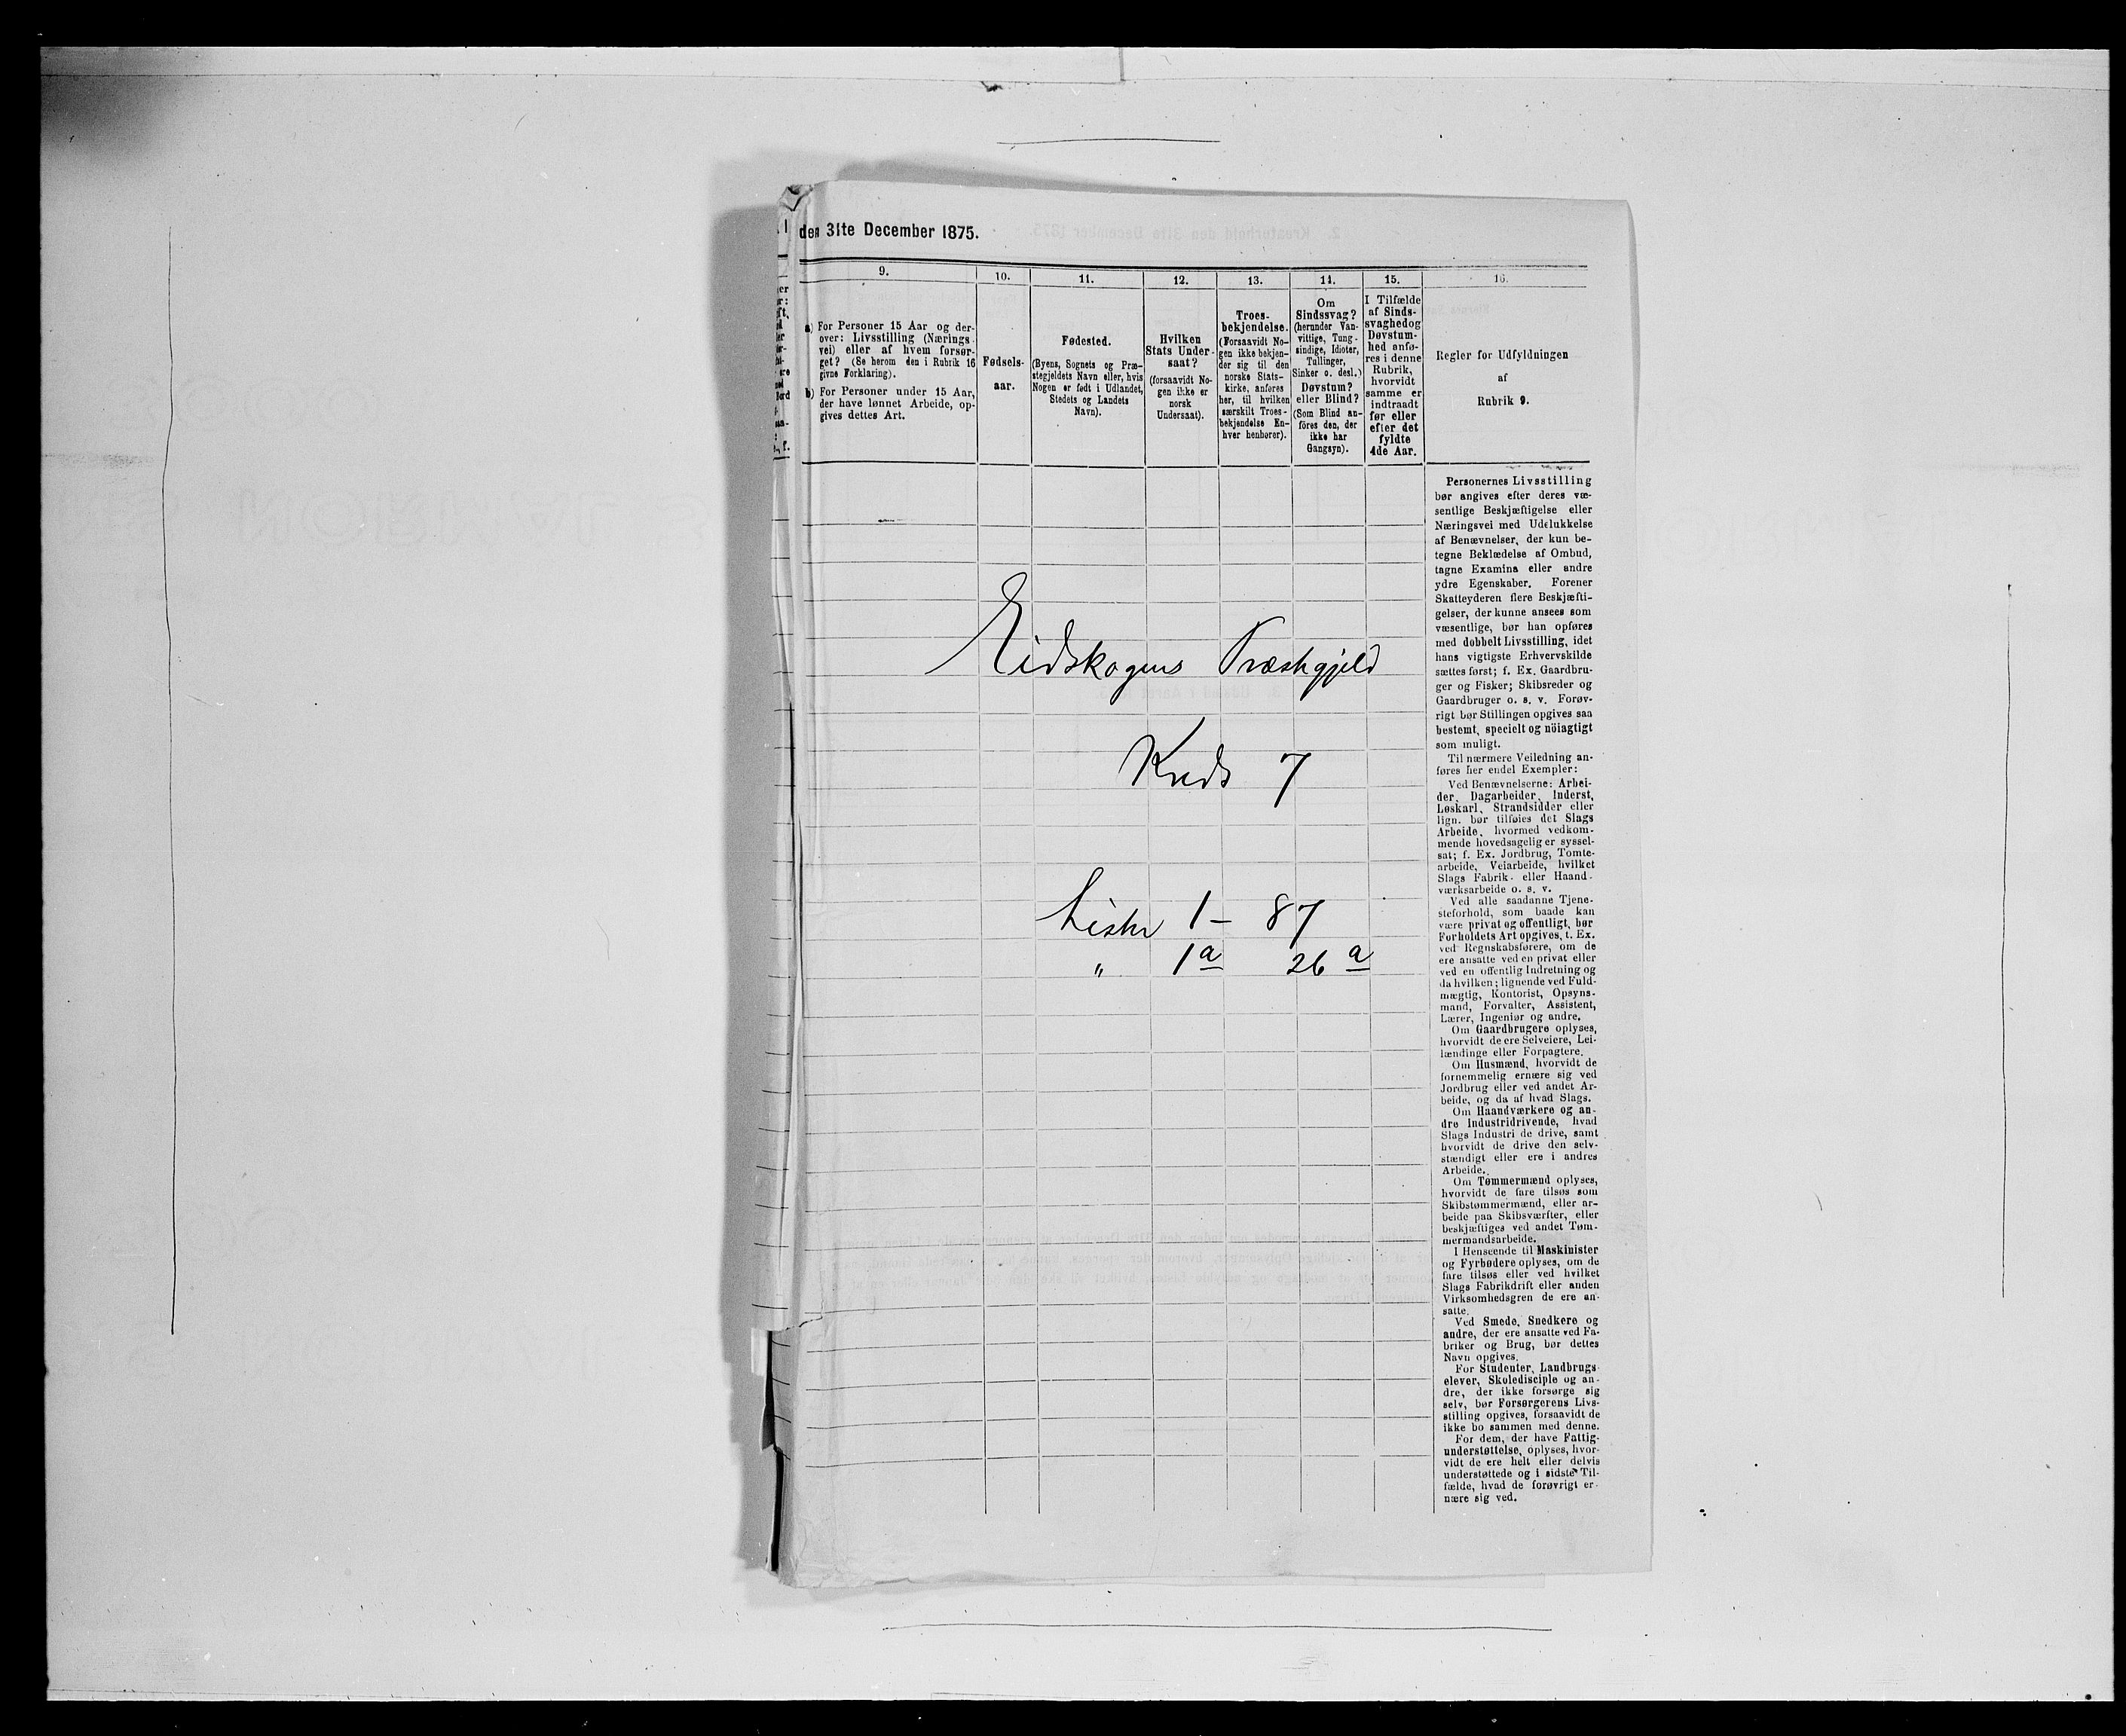 den 31te December 1875.
9.
a) For Personer 15 Aar og der-
over: Livsstilling (Nærings-
vei) eller af hvem forsør-
get? (Se herom den i Rubrik 16
givne Forklaring).
b) For Personer under 15 Aar,
der have lønnet Arbeide, op-
gives dettes Art.
10.
Fødsels-
aar.
11.
Fødested.
(Byens, Sognets og Præ-
stegjeldets Navn eller, hvis
Nogen er født i Udlandet,
Stedets og Landets
Navn).
12.
Hvilken
Stats Under-
saat?
(forsaavidt No-
gen ikke er
norsk
Undersaat).
13.
Troes-
bekjendelse.
(Forsaavidt No-
gen ikke bekjen-
der sig til den
norske Stats-
kirke, anføres
her, til hvilken
særskilt Troes-
bekjendelse En-
hver henhører).
14.
Om
Sindssvag?
(herunder Van-
vittige, Tung-
sindige, Idioter,
Tullinger,
Sinker o. desl.)
Døvstum?
eller Blind?
(Som Blind an-
föres den, der
ikke har
Gangsyn).
15.
I Tilfælde
af Sinds-
svaghedog
Døvstum-
hed anfø-
res i denne
Rubrik,
hvorvidt
samme er
indtraadt
før eller
efter det
fyldte
4de Aar.
16.
Regler for Udfyldningen
af
Rubrik 9.
Eidskogens Præstegjeld
Kreds 7
Lister 1 - 87
" 1a 26a
Personernes Livsstilling
bør angives efter deres væ-
sentlige Beskjæftigelse eller
Næringsvei med Udelukkelse
af Benævnelser, der kun be-
tegne Beklædelse af Ombud,
tagne Examina eller andre
ydre Egenskaber. Forener
Skatteyderen flere Beskjæfti-
gelser, der kunne ansees som
væsentlige, bør han opføres
med dobbelt Livsstilling, idet
hans vigtigste Erhvervskilde
sættes først; f. Ex. Gaardbru-
ger og Fisker; Skibsreder og
Gaardbruger o. s. v. Forøv-
rigt bør Stillingen opgives saa
bestemt, specielt og nöiagtigt
som muligt.
Til nærmere Veiledning an-
føres her endel Exempler:
Ved Benævnelserne: Arbei-
der, Dagarbeider, Inderst,
Løskarl, Strandsidder eller
lign. bør tilføies det Slags
Arbeide, hvormed vedkom-
mende hovedsagelig er syssel-
sat; f. Ex. Jordbrug, Tomte-
arbeide, Veiarbeide, hvilket
Slags Fabrik- eller Haand-
værksarbeide o. s. v.
Ved alle saadanne Tjene-
steforhold, som baade kan
være privat og offentligt, bør
Forholdets Art opgives, t. Ex.
ved Regnskabsførere, om de
ere ansatte ved en privat eller
ved en offentlig Indretning og
da hvilken; lignende ved Fuld-
mægtig, Kontorist, Opsyns-
mand, Forvalter, Assistent,
Lærer, Ingeniør og andre.
Om Gaardbrugere oplyses,
hvorvidt de ere Selveiere, Lei-
lændinge eller Forpagtere.
Om Husmænd, hvorvidt de
fornemmelig ernære sig ved
Jordbrug eller ved andet Ar-
beide, og da af hvad Slags.
Om Haandværkere og an-
dre Industridrivende, hvad
Slags Industri de drive, samt
hvorvidt de drive den selv-
stændigt eller ere i andres
Arbeide.
Om Tømmermænd oplyses,
hvorvidt de fare tilsøs som
Skibstømmermænd, eller ar-
beide paa Skibsværfter, eller
beskjæftiges ved andet Tøm-
mermandsarbeide.
I Henseende til Maskinister
og Fyrbødere oplyses, om de
fare tilsøs eller ved hvilket
Slags Fabrikdrift eller anden
Virksomhedsgren de ere an-
satte.
Ved Smede, Snedkere og
andre, der ere ansatte ved Fa-
briker og Brug, bør dettes
Navn opgives.
For Studenter, Landbrugs-
elever, Skoledisciple og an-
dre, der ikke forsørge sig
selv, bør Forsørgerens Livs-
stilling opgives, forsaavidt de
ikke bo sammen med denne.
For dem, der have Fattig-
understøttelse, oplyses, hvor-
vidt de ere helt eller delvis
understøttede og i sidste Til-
fælde, hvad de forøvrigt er-
nære sig ved.